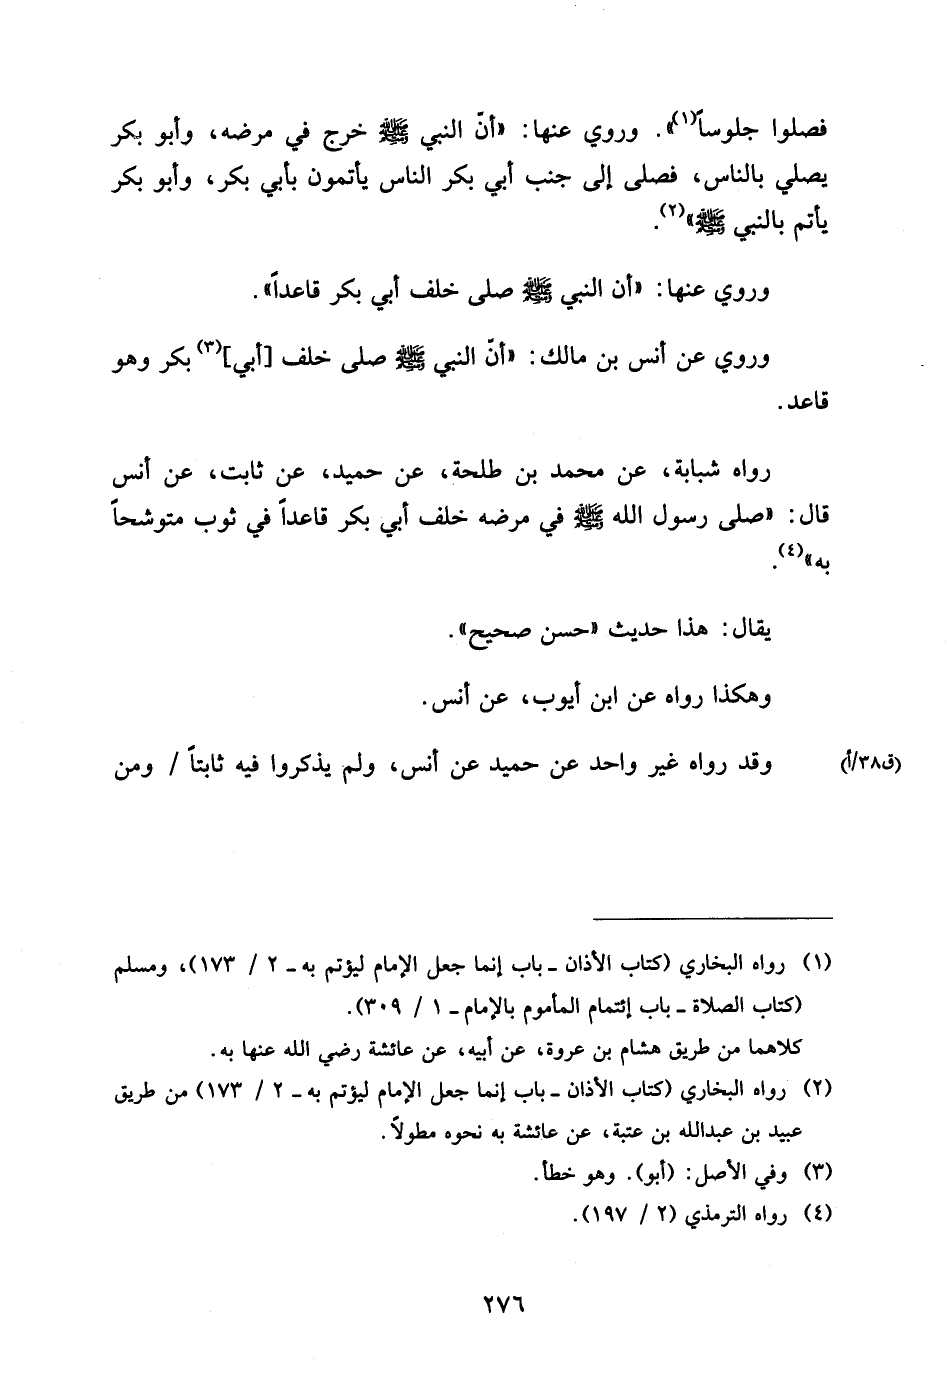 فصلوا جلوساً(١)». وروي عنها: «أنّ النبي ﷺ خرج في مرضه، وأبو بكر
يصلي بالناس، فصلى إلى جنب أبي بكر الناس يأتمون بأبي بكر، وأبو بكر
يأتم بالنبي ﷺ»(٢).
وروي عنها: «أن النبي ﷺ صلى خلف أبي بكر قاعداً».
وروي عن أنس بن مالك: «أنّ النبي ﷺ صلى خلف [أبي](٣) بكر وهو
قاعد.
رواه شبابة، عن محمد بن طلحة، عن حميد، عن ثابت، عن أنس
قال: «صلى رسول الله ﷺ في مرضه خلف أبي بكر قاعداً في ثوب متوشحاً
به»(٤).
يقال: هذا حديث «حسن صحيح».
وهكذا رواه عن ابن أيوب، عن أنس.
(ق٣٨/أ) وقد رواه غير واحد عن حميد عن أنس، ولم يذكروا فيه ثابتاً / ومن
(١) رواه البخاري (كتاب الأذان ـ باب إنما جعل الإمام ليؤتم به ـ ٢ / ١٧٣)، ومسلم
(كتاب الصلاة ـ باب إئتمام المأموم بالإمام ـ ١ / ٣٠٩).
كلاهما من طريق هشام بن عروة، عن أبيه، عن عائشة رضي الله عنها به.
(٢) رواه البخاري (كتاب الأذان ـ باب إنما جعل الإمام ليؤتم به ـ ٢ / ١٧٣) من طريق
عبيد بن عبدالله بن عتبة، عن عائشة به نحوه مطولاً.
(٣) وفي الأصل: (أبو). وهو خطأ.
(٤) رواه الترمذي (٢ / ١٩٧).
٢٧٦